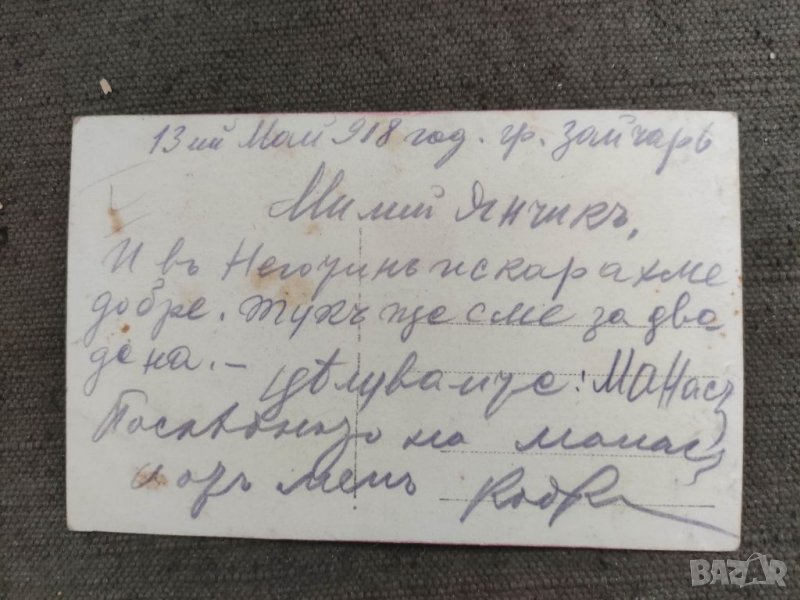 13 ий Май 918 год. гр. Зайчарь
Милий Янчикъ,
И въ Неготинъ искарахме
добре. Тукъ ще сме за два
дена. — Цѣлувамте: Манасъ
на Манасъ
и отъ менъ
BAZAR